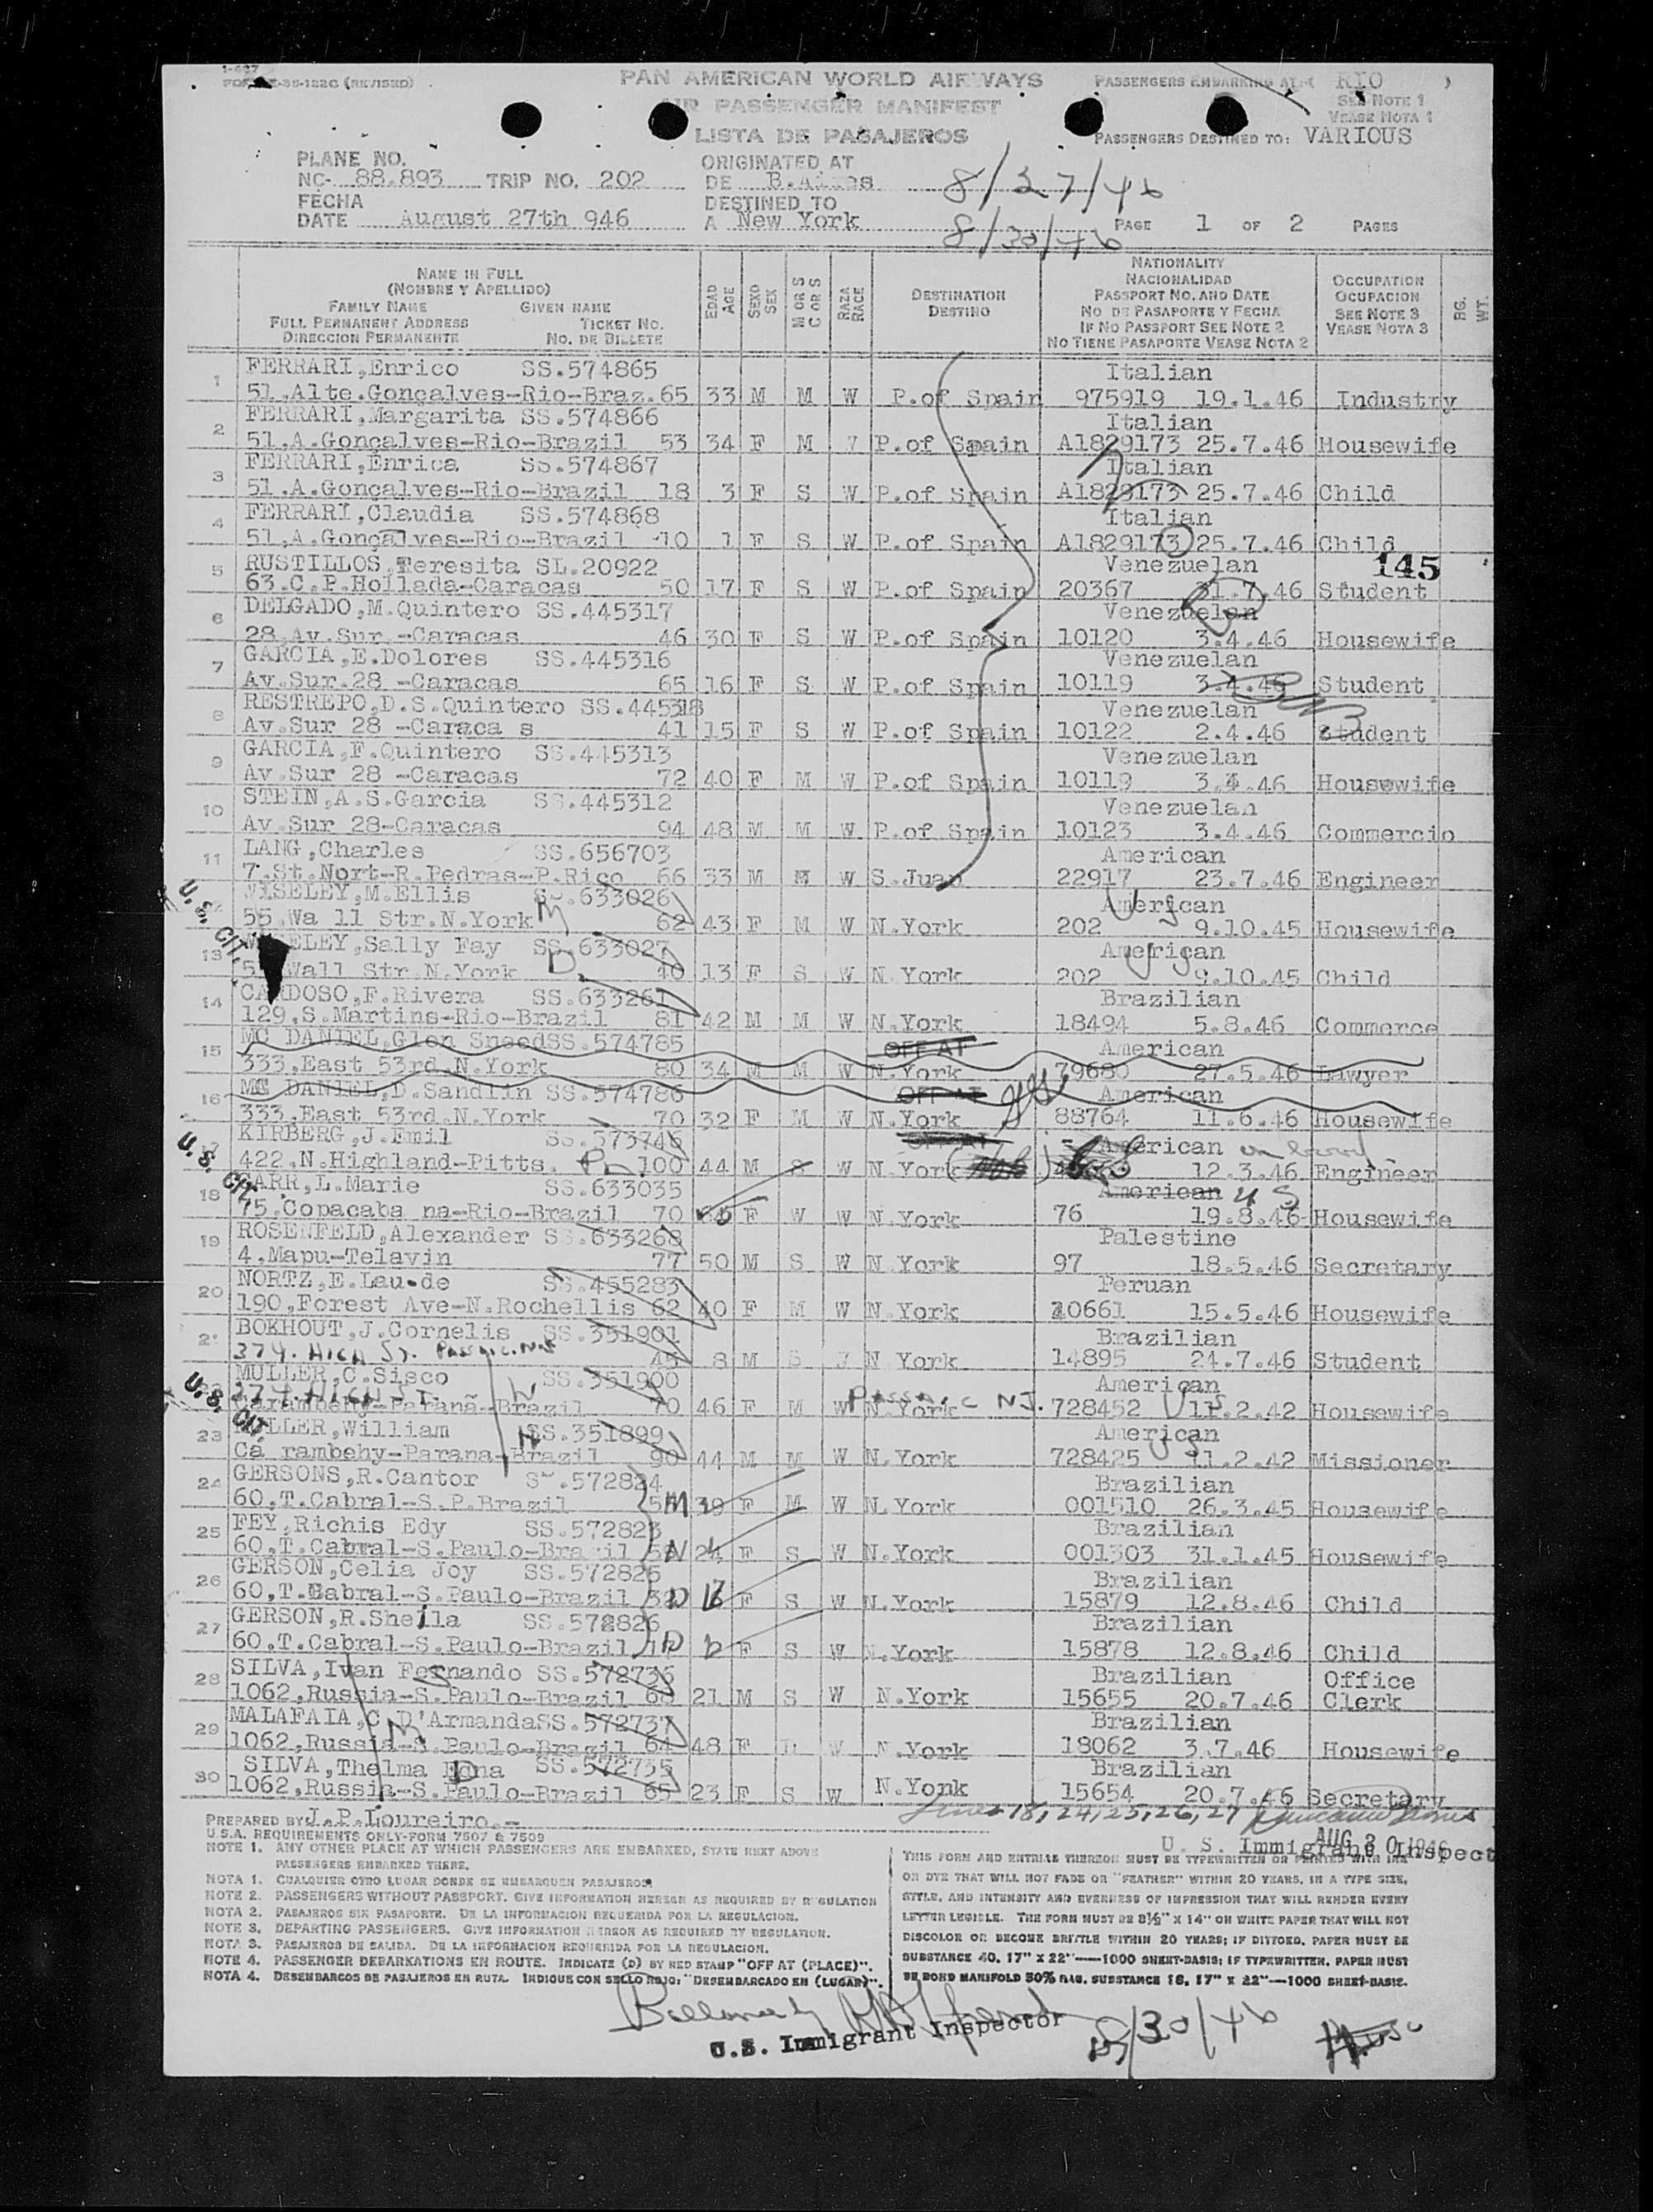 1-467
FORM (REVISED)
PAN AMERICAN WORLD AIRWAYS
AIR PASSENGER MANIFEST
LISTA DE PASAJEROS
PASSENGERS EMBARKING AT: RIO
SEE NOTE 1
VEASE NOTA 1
PASSENGERS DESTINED TO: VARIOUS
PLANE NO.
NC- 88.893 TRIP NO. 202
FECHA
DATE August 27th 946
ORIGINATED AT
DE B.Aires 8/27/46
DESTINED TO
A New York 8/30/46
PAGE 1 OF 2 PAGES
NAME IN FULL
(NOMBRE Y APELLIDO)
FAMILY NAME GIVEN NAME
FULL PERMANENT ADDRESS TICKET NO.
DIRECCION PERMANENTE NO. DE BILLETE
EDAD AGE
SEXO SEX
M OR S C OR S
RAZA RACE
DESTINATION
DESTINO
NATIONALITY
NACIONALIDAD
PASSPORT NO. AND DATE
NO DE PASAPORTE Y FECHA
IF NO PASSPORT SEE NOTE 2
NO TIENE PASAPORTE VEASE NOTA 2
OCCUPATION
OCUPACION
SEE NOTE 3
VEASE NOTA 3
BG. WT.
1 FERRARI,Enrico SS.574865 Italian
51,Alte.Gonçalves-Rio-Braz.65 33 M M W P.of Spain 975919 19.1.46 Industry
2 FERRARI,Margarita SS.574866 Italian
51,A.Gonçalves-Rio-Brazil 53 34 F M W P.of Spain A1829173 25.7.46 Housewife
3 FERRARI,Enrica SS.574867 Italian
51.A.Gonçalves-Rio-Brazil 18 3 F S W P.of Spain A1829173 25.7.46 Child
4 FERRARI,Claudia SS.574868 Italian
51,A.Gonçalves-Rio-Brazil 10 1 F S W P.of Spain A1829173 25.7.46 Child
145
5 RUSTILLOS,Teresita SL.20922 Venezuelan
63.C.P.Hollada-Caracas 50 17 F S W P.of Spain 20367 31.7.46 Student
6 DELGADO,M.Quintero SS.445317 Venezuelan
28,Av.Sur.-Caracas 46 30 F S W P.of Spain 10120 3.4.46 Housewife
7 GARCIA,E.Dolores SS.445316 Venezuelan
Av.Sur.28 -Caracas 65 16 F S W P.of Spain 10119 3.4.46 Student
8 RESTREPO,D.S.Quintero SS.445318 Venezuelan
Av.Sur 28 -Caraca s 41 15 F S W P.of Spain 10122 2.4.46 Student
9 GARCIA,F.Quintero SS.445313 Venezuelan
Av.Sur 28 -Caracas 72 40 F M W P.of Spain 10119 3.4.46 Housewife
10 STEIN,A.S.Garcia SS.445312 Venezuelan
Av.Sur 28-Caracas 94 48 M M W P.of Spain 10123 3.4.46 Commercio
11 LANG,Charles SS.656703 American
7.St.Nort-R.Pedras-P.Rico 66 33 M M W S.Juan 22917 23.7.46 Engineer
U. S. CIT.
WISELEY,M.Ellis SS.633026 American
55.Wa ll Str.N.York M 62 43 F M W N.York 202 US 9.10.45 Housewife
13 WISELEY,Sally Fay SS.633027 American
Wall Str.N.York D. 40 13 F S W N.York 202 US 9.10.45 Child
14 CARDOSO,F.Rivera SS.633261 Brazilian
129,S.Martins-Rio-Brazil 81 42 M M W N.York 18494 5.8.46 Commerce
15 MC DANIEL,Glen SneedSS.574785 OFF AT American
333,East 53rd.N.York 80 34 M M W N.York 79680 27.5.46 Lawyer
16 MC DANIEL,D.Sandlin SS.574786 OFF AT American
333,East 53rd.N.York 70 32 F M W N.York 88764 11.6.46 Housewife
U. S. CIT.
KIRBERG,J.Emil SS.573746 OFF AT American
422.N.Highland-Pitts. Pa 100 44 M S W N.York 12.3.46 Engineer
18 L.Marie SS.633035 American US
75.Copacaba na-Rio-Brazil 70 F W W N.York 76 19.8.46 Housewife
19 ROSENFELD,Alexander SS.633268 Palestine
4.Mapu-Telavin 77 50 M S W N York 97 18.5.46 Secretary
20 NORTZ,E.Lau-de SS.455283 Peruan
190,Forest Ave-N.Rochellis 62 40 F M W N.York 10661 15.5.46 Housewife
BOKHOUT,J.Cornelis SS.351901 Brazilian
374. HIGH ST. PASSAIC.NJ 45 8 M S W N York 14895 24.7.46 Student
U. S. CIT.
MULLER,C.Sisco SS.351900 American
374.HIGH ST. PASSAIC NJ.
Carambehy-Paranã-Brazil 70 46 F M W N.York 728452 US 11.2.42 Housewife
23 MULLER,William SS.351899 American
Ca rambehy-Parana-Brazil 90 44 M M W N.York 728425 US 11.2.42 Missioner
24 GERSONS,R.Cantor SS.572824 Brazilian
60,T.Cabral-S.P.Brazil M 39 F M W N.York 001510 26.3.45 Housewife
25 FEY,Richis Edy SS.572823 Brazilian
60.T.Cabral-S.Paulo-Brazil N F S W N.York 001303 31.1.45 Housewife
26 GERSON,Celia Joy SS.572825 Brazilian
60,T.Cabral-S.Paulo-Brazil D F S W N.York 15879 12.8.46 Child
27 GERSON,R.Sheila SS.572826 Brazilian
60.T.Cabral-S.Paulo-Brazil D F S W N.York 15878 12.8.46 Child
28 SILVA,Ivan Fernando SS.572736 Brazilian Office
1062,Russia-S.Paulo-Brazil 68 21 M S W N.York 15655 20.7.46 Clerk
29 MALAFAIA,C D'ArmandaSS.572737 Brazilian
1062,Russia-S.Paulo-Brazil 64 48 F D W N.York 18062 3.7.46 Housewife
30 SILVA,Thelma Edna SS.572735 Brazilian
1062,Russia-S.Paulo-Brazil 65 23 F S W N.York 15654 20.7.46 Secretary
Lines 18,24,25,26,27
PREPARED BY J.P.Loureiro.-
U. S. Immigrant Inspect
AUG 30 1946
U.S.A. REQUIREMENTS ONLY-FORM 7507 & 7509
NOTE 1. ANY OTHER PLACE AT WHICH PASSENGERS ARE EMBARKED, STATE NEXT ABOVE
PASSENGERS EMBARKED THERE.
NOTA 1. CUALQUIER OTRO LUGAR DONDE SE EMBARQUEN PASAJEROS
NOTE 2. PASSENGERS WITHOUT PASSPORT. GIVE INFORMATION HEREON AS REQUIRED BY REGULATION
NOTA 2. PASAJEROS SIN PASAPORTE. DE LA INFORMACION REQUERIDA POR LA REGULACION.
NOTE 3. DEPARTING PASSENGERS. GIVE INFORMATION HEREON AS REQUIRED BY REGULATION.
NOTA 3. PASAJEROS DE SALIDA. DE LA INFORMACION REQUERIDA POR LA REGULACION.
NOTE 4. PASSENGER DEBARKATIONS EN ROUTE. INDICATE (D) BY RED STAMP "OFF AT (PLACE)".
NOTA 4. DESEMBARCOS DE PASAJEROS EN RUTA. INDIQUE CON SELLO ROJO: "DESEMBARCADO EN (LUGAR)".
THIS FORM AND ENTRIES THEREON MUST BE TYPEWRITTEN OR PRINTED WITH INK
OR DYE THAT WILL NOT FADE OR "FEATHER" WITHIN 20 YEARS, IN A TYPE SIZE,
STYLE, AND INTENSITY AND EVENNESS OF IMPRESSION THAT WILL RENDER EVERY
LETTER LEGIBLE. THE FORM MUST BE 8½" X 14" ON WHITE PAPER THAT WILL NOT
DISCOLOR OR BECOME BRITTLE WITHIN 20 YEARS; IF DITTOED, PAPER MUST BE
SUBSTANCE 40, 17" X 22"—1000 SHEET-BASIS; IF TYPEWRITTEN, PAPER MUST
BE BOND MANIFOLD 50% RAG. SUBSTANCE 16, 17" X 22"—1000 SHEET-BASIS.
U.S. Immigrant Inspector 8/30/46